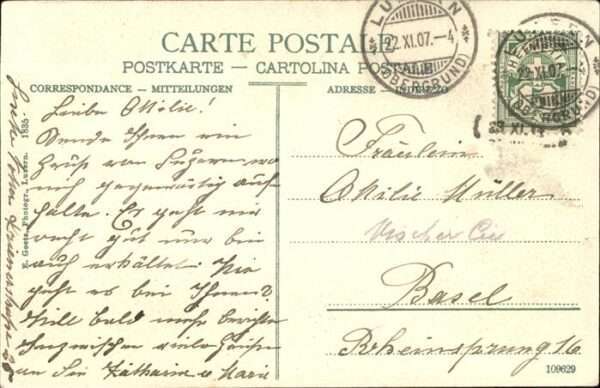 CARTE POSTALE
POSTKARTE — CARTOLINA POSTALE
CORRESPONDANCE — MITTEILUNGEN
ADRESSE — INDIRIZZO
LUZERN
22.XI.07.-4
(OBERGRUND)
LUZERN
22.XI.07
(OBERGRUND)
E. Goetz, Photogr., Luzern. 1835
Liebe Otilie!
Sende Ihnen ein
Gruss von Luzern, wo
mich gegenwärtig auf-
halte. Es geht mir
recht gut nur bin
auf erhältet. Wie
geht es bei Ihnen?
Will bald mehr berichten
Inzwischen viele Grüsse
an Sie Katharina u Marie
Fräulein
Otilie Müller
Vischer Cie
Basel
Rheinsprung 16
109629